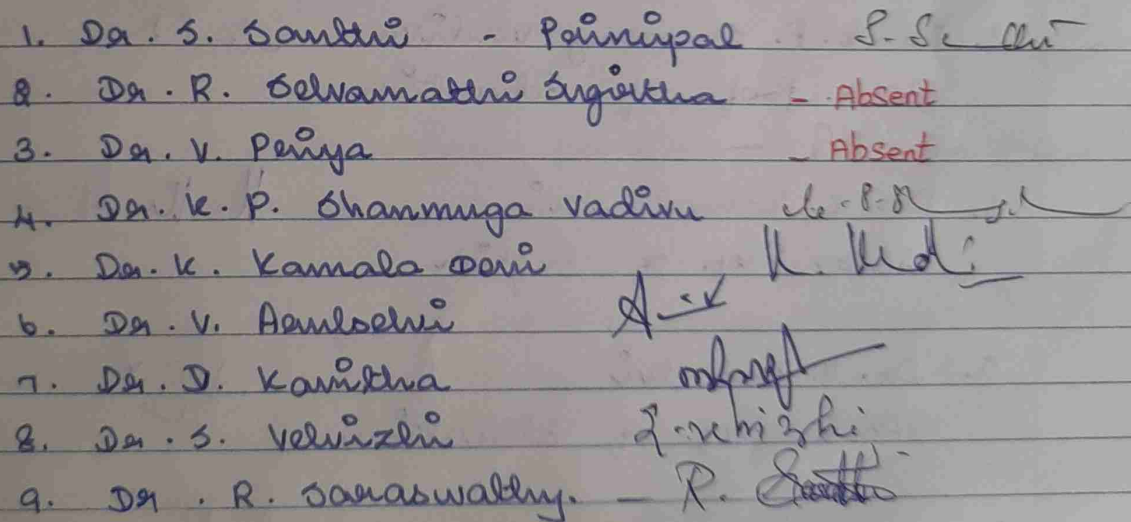 1. Dr. S. Santhi - Principal S. S
2. Dr. R. Selvamathi Sugirtha - Absent
3. Dr. V. Priya - Absent
4. Dr. K. P. Shanmuga Vadivu
5. Dr. K. Kamala Devi K.
6. Dr. V. Arulselvi
7. Dr. D. Kavitha
8. Dr. S. Velvizhi
9. Dr. R. Saraswathy. - R.